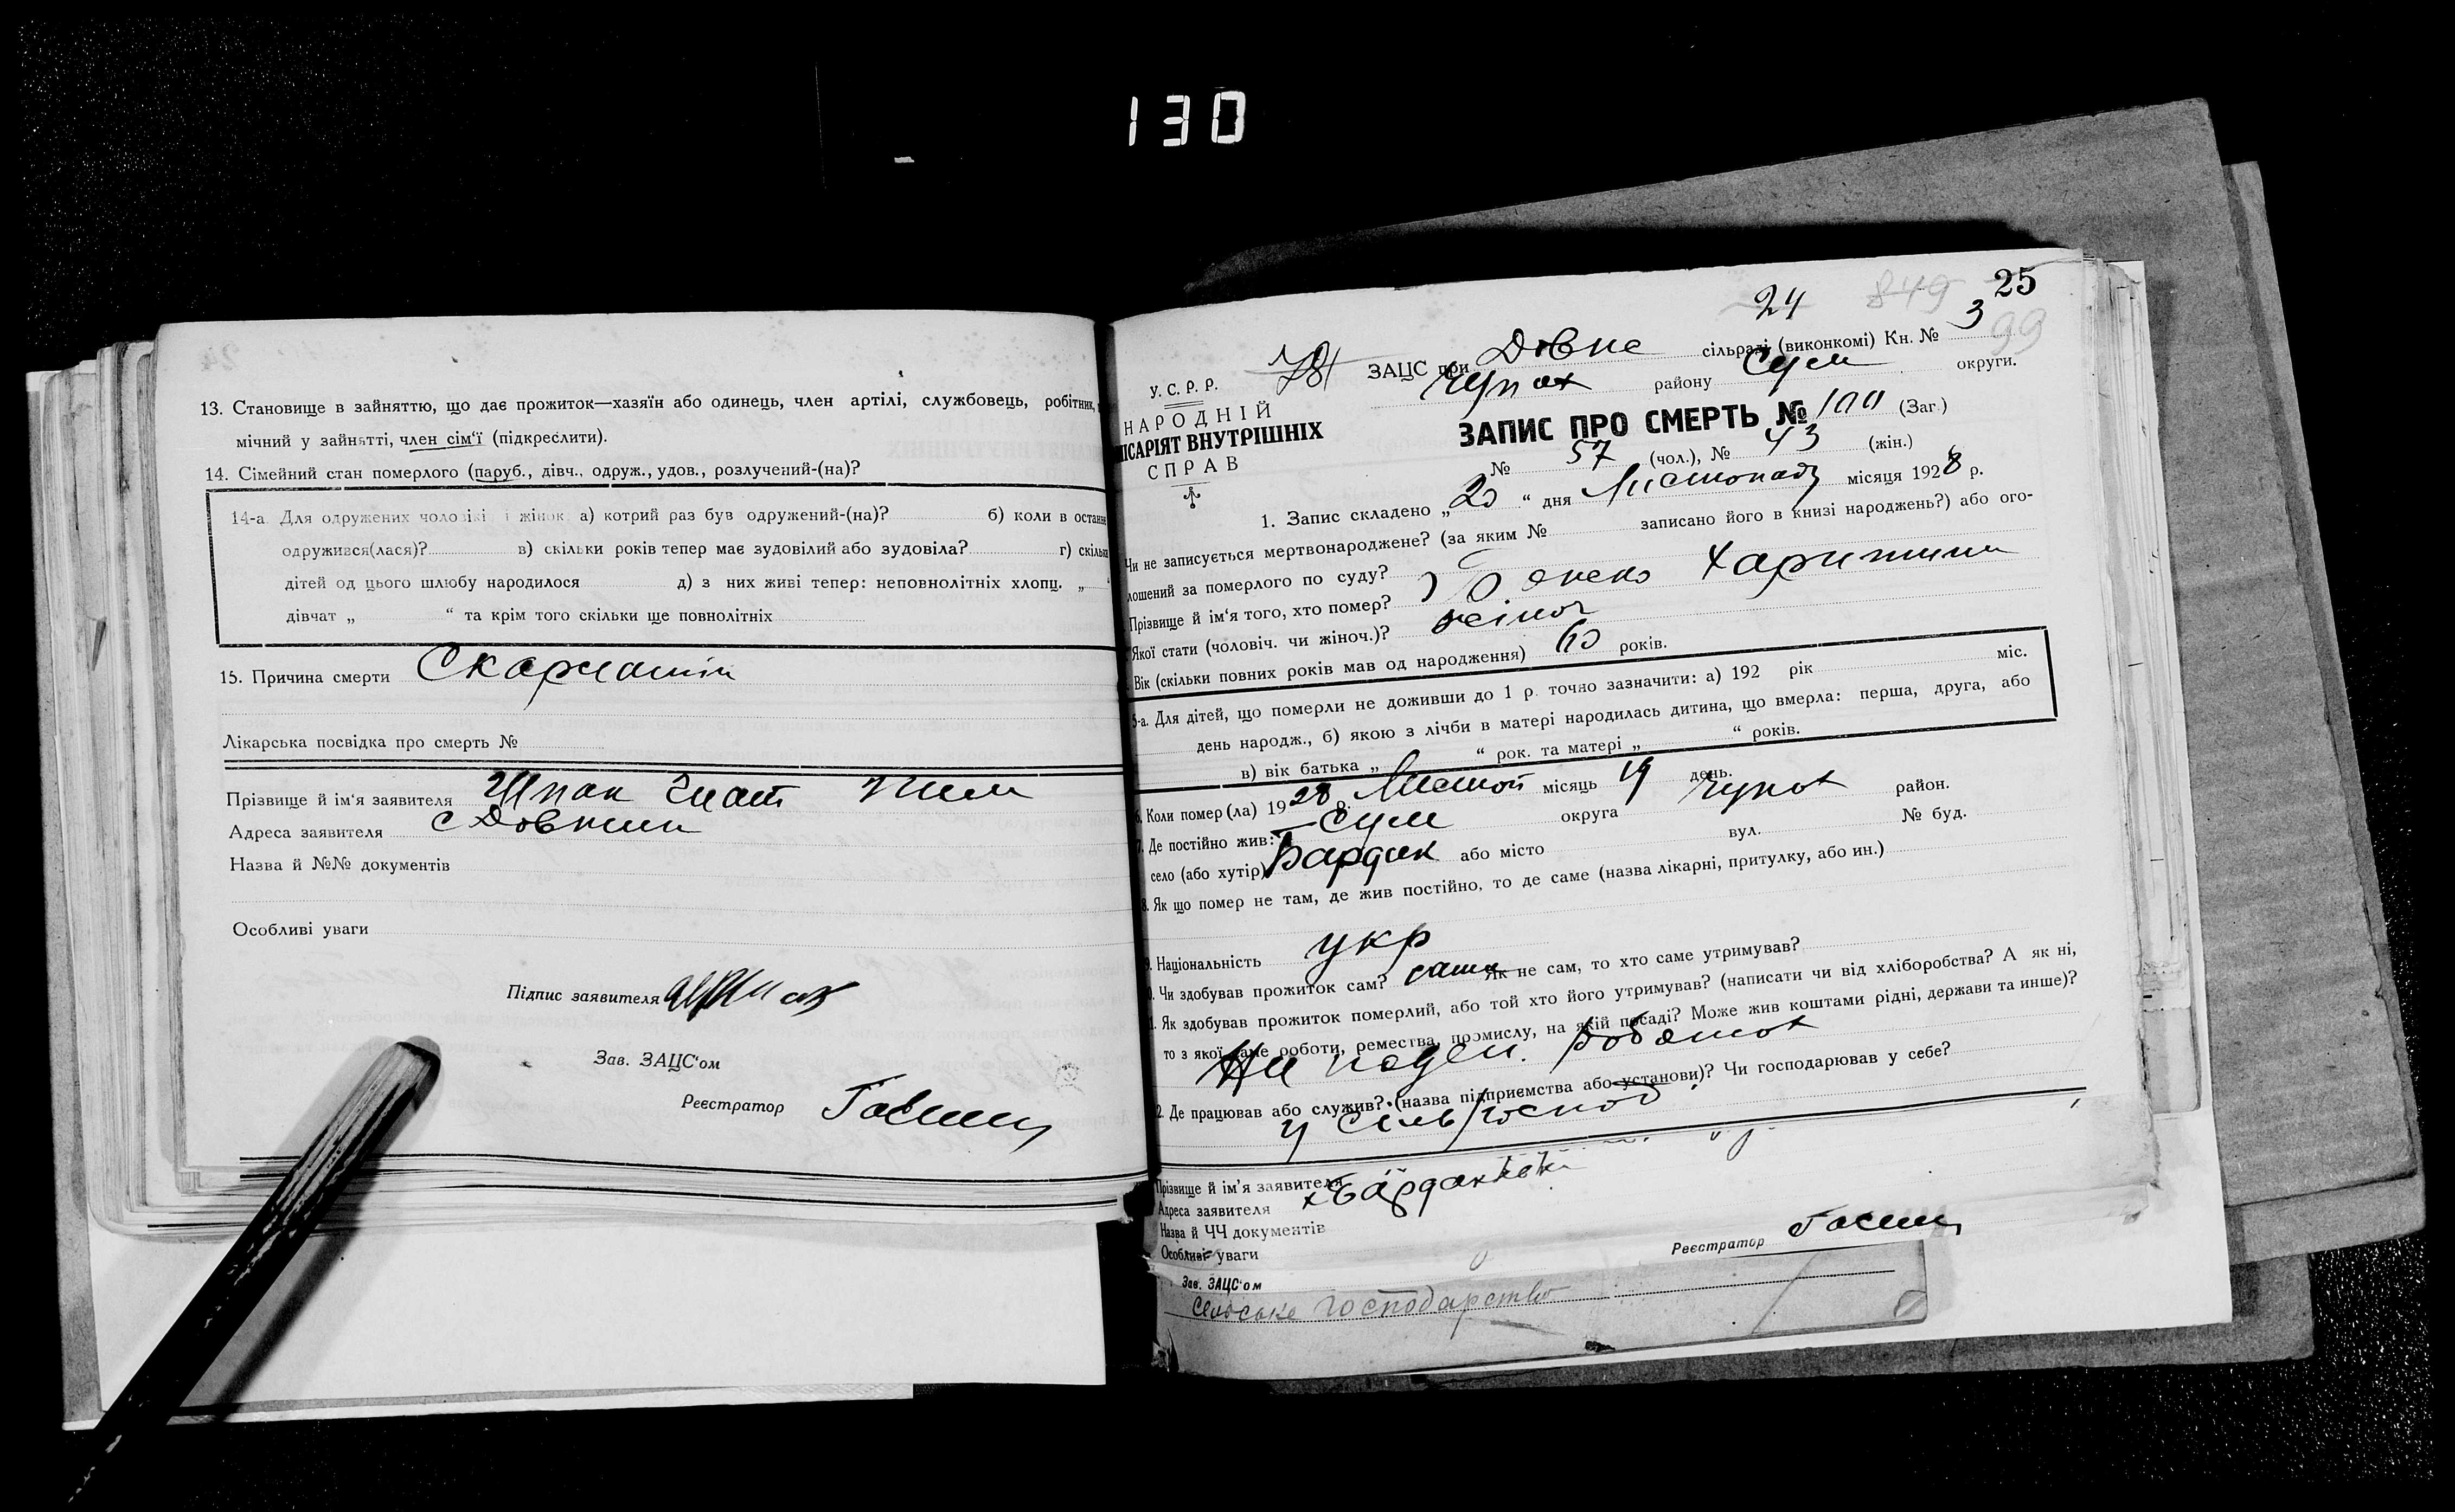 130
13. Становище в зайняттю, що дає прожиток—хазяїн або одинець, член артілі, службовець, робітник,
мічний у зайнятті, член сім'ї (підкреслити).
14. Сімейний стан померлого (паруб., дівч., одруж., удов., розлучений-(на)?
14-а. Для одружених чоловіків і жінок а) котрий раз був одружений-(на)? б) коли в останн
одружився(лася)? в) скільки років тепер має зудовілий або зудовіла? г) скільки
дітей од цього шлюбу народилося д) з них живі тепер: неповнолітніх хлопц. „ “
дівчат „ “ та крім того скільки ще повнолітніх
15. Причина смерти Скарлатін
Лікарська посвідка про смерть №
Прізвище й ім'я заявителя Шпак
Адреса заявителя с Довжик
Назва й №№ документів
Особливі уваги
Підпис заявителя
Зав. ЗАЦС'ом
Реєстратор
24 849 25
99
У. С. Р. Р.
НАРОДНІЙ
ІСАРІЯТ ВНУТРІШНІХ
СПРАВ
ЗАЦС при Довже сільраді (виконкомі) Кн. № 3
Чупах району Сум округи.
ЗАПИС ПРО СМЕРТЬ № 100 (Заг.)
№ 57 (чол.), № 43 (жін.)
1. Запис складено „20“ дня Листопад місяця 1928 р.
Чи не записується мертвонароджене? (за яким № записано його в книзі народжень?) або ого-
лошений за померлого по суду?
Прізвище й ім'я того, хто помер? Харитини
Якої стати (чоловіч. чи жіноч.)? жіноч
Вік (скільки повних років мав од народження) 60 років.
5-а. Для дітей, що померли не доживши до 1 р. точно зазначити: а) 192 рік міс.
день народж., б) якою з лічби в матері народилась дитина, що вмерла: перша, друга, або
в) вік батька „ “ рок. та матері „ “ років.
6. Коли помер(ла) 1928 р. Листоп місяць 19 день.
7. Де постійно жив: Сум округа Чупах район.
село (або хутір) Бардак або місто вул. № буд.
8. Як що помер не там, де жив постійно, то де саме (назва лікарні, притулку, або ин.)
9. Національність укр
10. Чи здобував прожиток сам? сама Як не сам, то хто саме утримував?
11. Як здобував прожиток померлий, або той хто його утримував? (написати чи від хліборобства? А як ні,
то з якої саме роботи, ремества, промислу, на якій посаді? Може жив коштами рідні, держави та инше)?
На поден. роботах
12. Де працював або служив? (назва підприємства або установи)? Чи господарював у себе?
у Сільгоспод
Прізвище й ім'я заявителя
Адреса заявителя х Бардаківка
Назва й ЧЧ документів
Особливі уваги
Реєстратор
Зав. ЗАЦС'ом
Сільське господарство